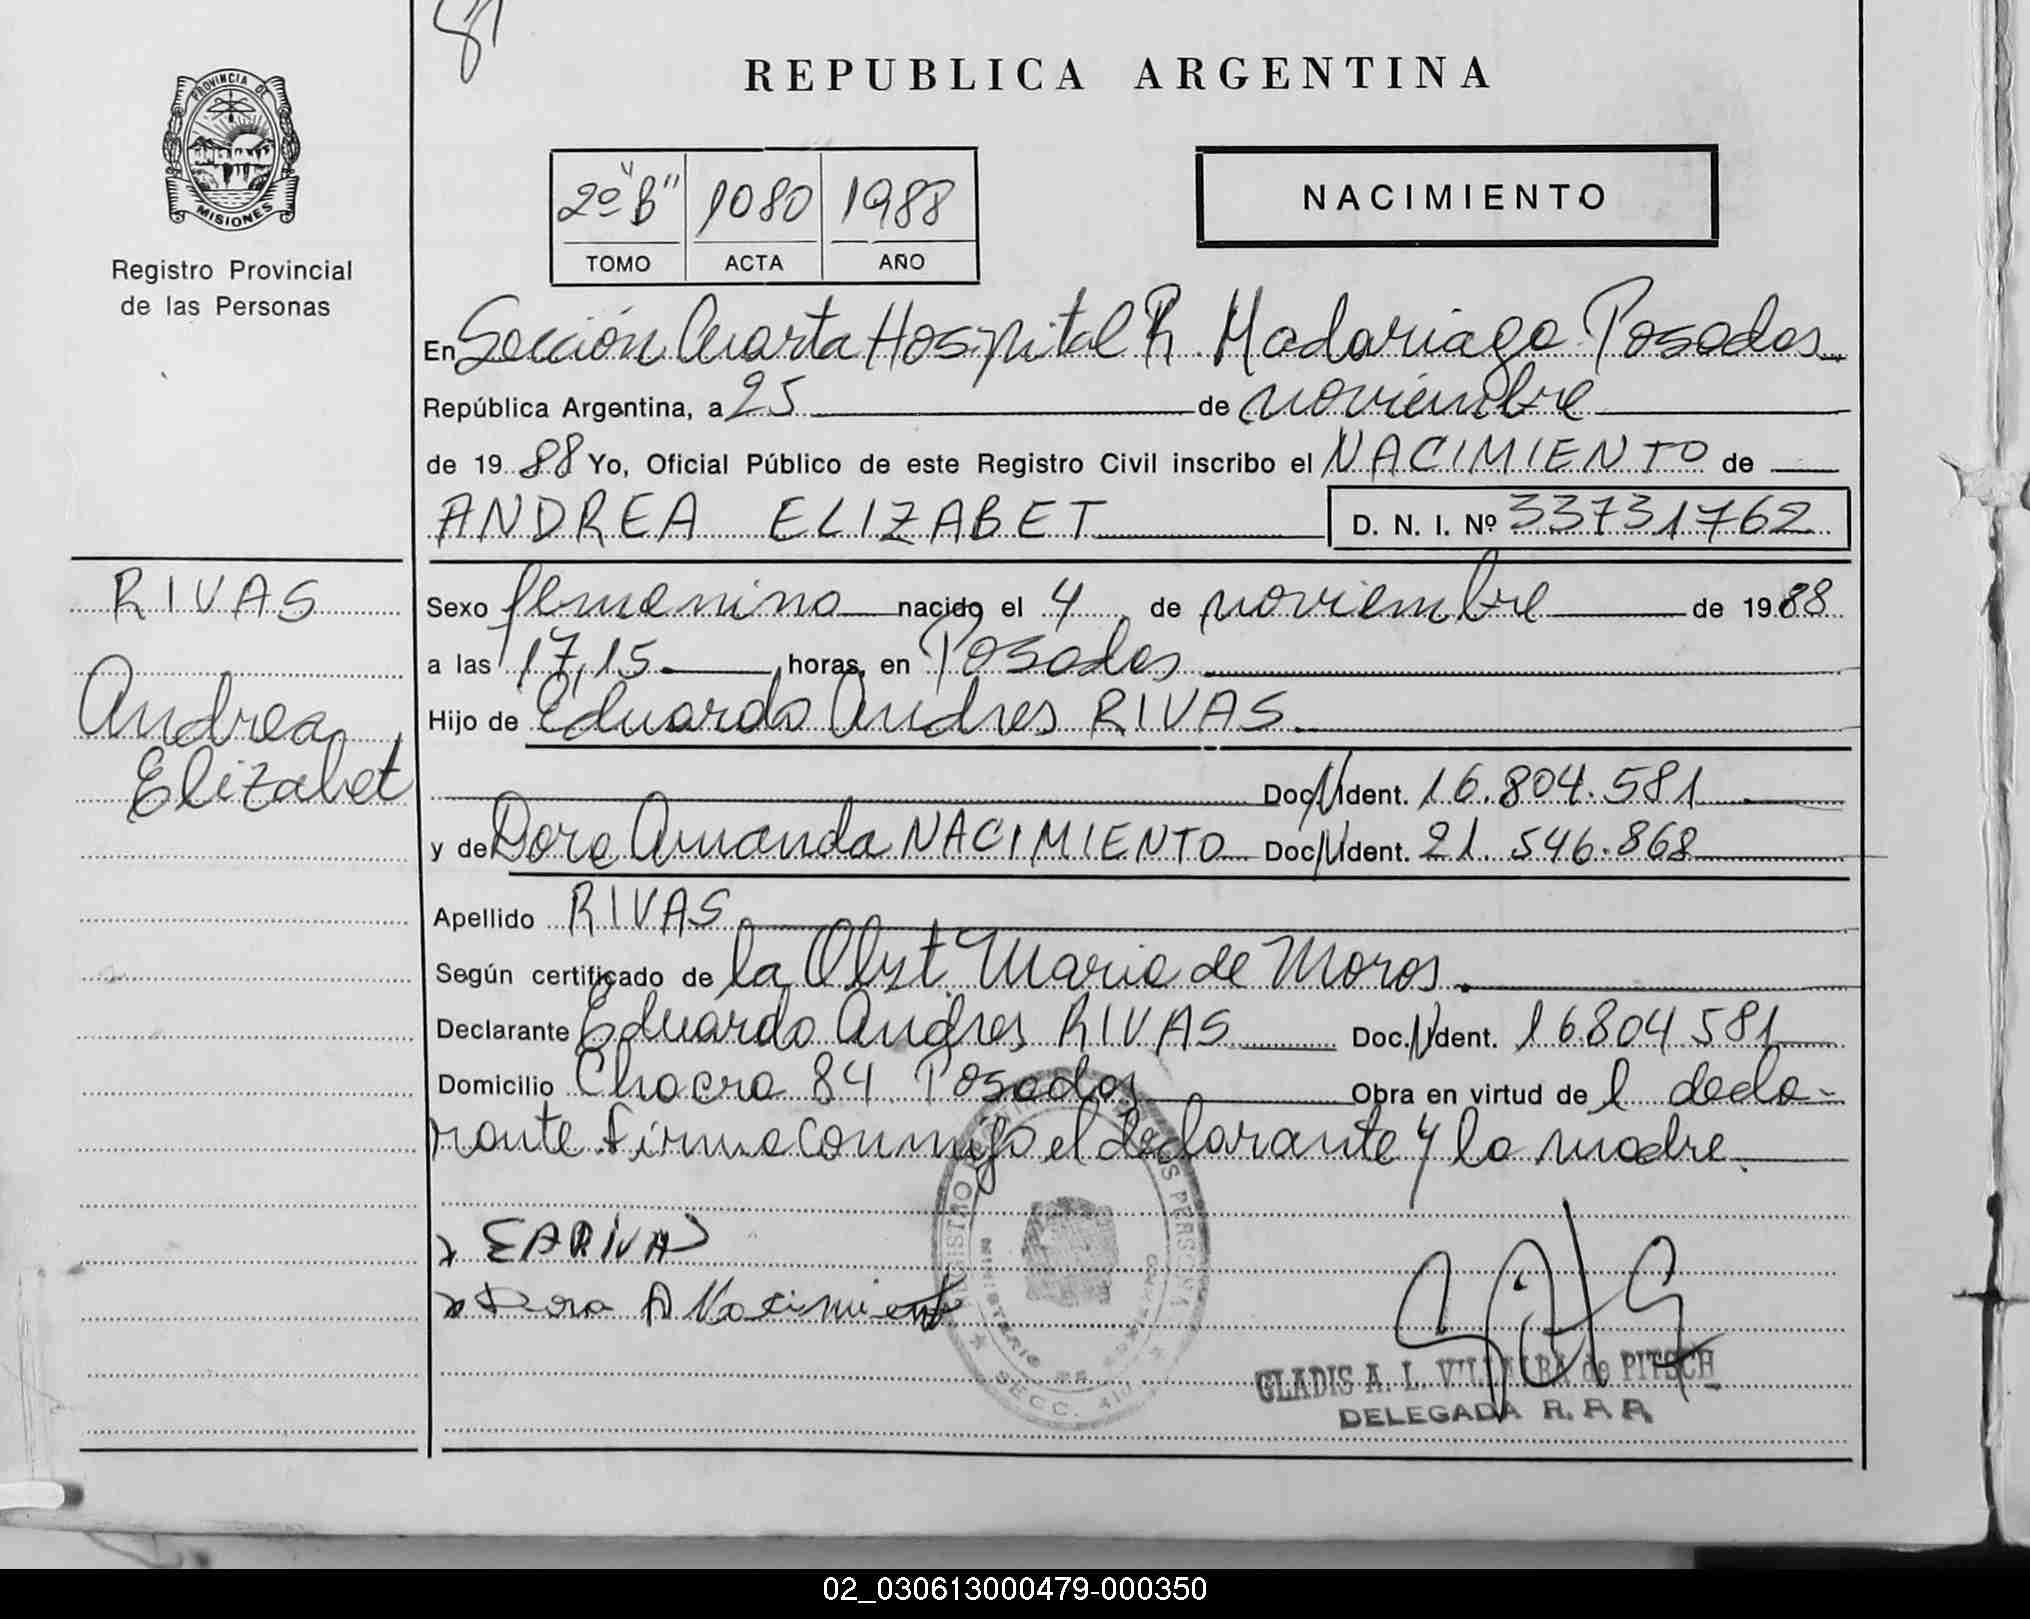 81
REPUBLICA ARGENTINA
PROVINCIA DE
MISIONES
Registro Provincial
de las Personas
2º "B" 1080 1988
TOMO ACTA AÑO
NACIMIENTO
En Sección Cuarta Hospital R. Madariaga Posadas
República Argentina, a 25 de noviembre
de 1988 Yo, Oficial Público de este Registro Civil inscribo el NACIMIENTO de
ANDREA ELIZABET D. N. I. Nº 33731762
RIVAS
Andrea
Elizabet
Sexo femenino nacido el 4 de noviembre de 1988
a las 17,15 horas, en Posadas
Hijo de Eduardo Andres RIVAS
Doc. N Ident. 16.804.581
y de Dora Amanda NACIMIENTO Doc. N Ident. 21.546.868
Apellido RIVAS
Según certificado de la Obst Maria de Moros
Declarante Eduardo Andres RIVAS Doc. N Ident. 16.804.581
Domicilio Chacra 84 Posadas Obra en virtud de l decla-
rante firma conmigo el declarante y la madre.
EARIVAS
Dora A Nacimiento
SECC. 4ta
GLADIS A. L. VILLALBA de PITSCH
DELEGADA R. P. P.
02_030613000479-000350